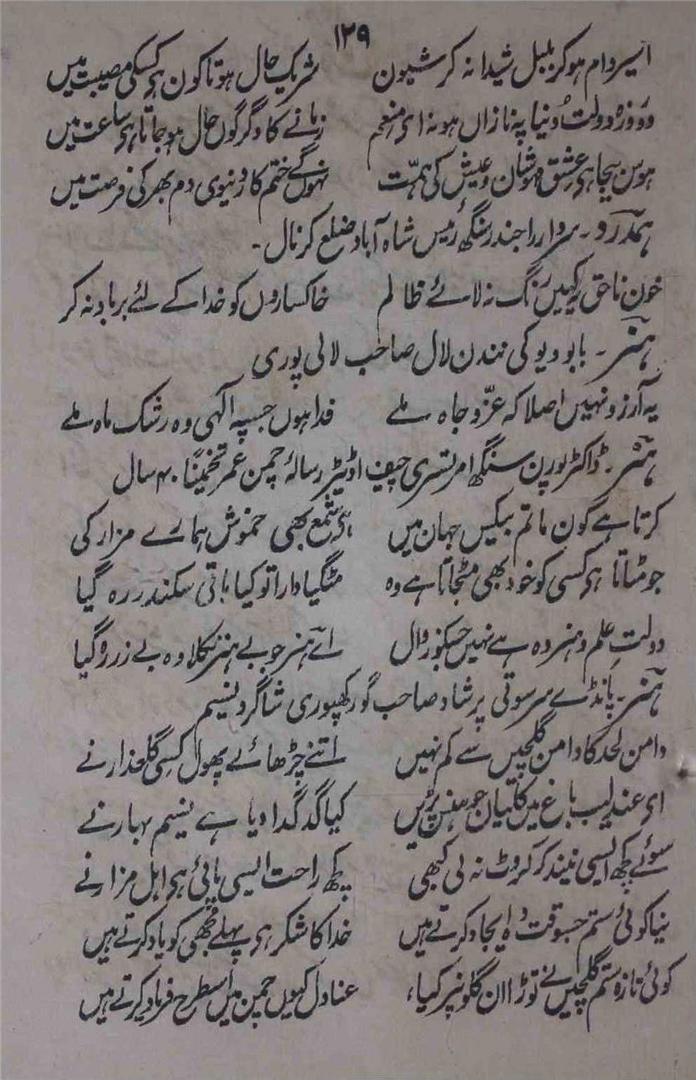 ۱۲۹
اسیر دام ہو کر بلبل شیدا نہ کر شیون شریک حال ہوتا کون ہی کسکی مصیبت میں
دو روزہ دولت دُنیا پہ نازاں ہو نہ ای منعم زمانے کا دگرگوں حال ہو جاتا ہی ساعت میں
ہوس بیجا ہی عشق و شان و عیش کی ہمت نہوں گے ختم کار دنیوی دم بھر کی فرصت میں
ہمدرد۔ سردار راجندر سنگھ رئیس شاہ آباد ضلع کرنال۔
خون ناحق یہ کہیں رنگ نہ لائے ظالم خاکساروں کو خدا کے لئے برباد نہ کر
ہنر۔ بابو دیو کی نندن لال صاحب لالی پوری
یہ آرزو نہیں اصلا کہ عزّ و جاہ ملے فدا ہوں جسپہ الٰہی وہ رشک ماہ ملے
ہنر۔ ڈاکٹر پورن سنگھ امرتسری چیف اوڈیٹر رسالۂ چمن عمر تخمینًا ۴۰ سال
کرتا ہے کون ماتم بیکس جہان میں ہی شمع بھی خموش ہمارے مزار کی
جو مٹاتا ہی کسی کو خود بھی مٹجاتا ہے وہ مٹگیا دارا تو کیا باقی سکندر رہ گیا
دولتِ علم و ہنر وہ ہے نہیں جسکو زوال اے ہنر جو بے ہنر نکلا وہ بے زر رہ گیا
ہنر۔ پانڈے سرسوتی پرشاد صاحب گورکھپوری شاگرد نسیم
دامن لحد کا دامن گلچیں سے کم نہیں اتنے چڑھائے پھول کسی گلعذار نے
ای عندلیب باغ میں کلیان جو ہنس پڑیں کیا گدگدا دیا ہے نسیم بہار نے
سوئے کچھ ایسی نیند کہ کروٹ نہ لی کبھی کچھ راحت ایسی پائی ہی اہل مزار نے
نیا کوئی ستم جسوقت وہ ایجاد کرتے ہیں خدا کا شکر ہی پہلے مجھی کو یاد کرتے ہیں
کوئی تازہ ستم گلچیں نے توڑا ان گلونپر کیا، عنادل کیوں چمن میں اسطرح فریاد کرتے ہیں